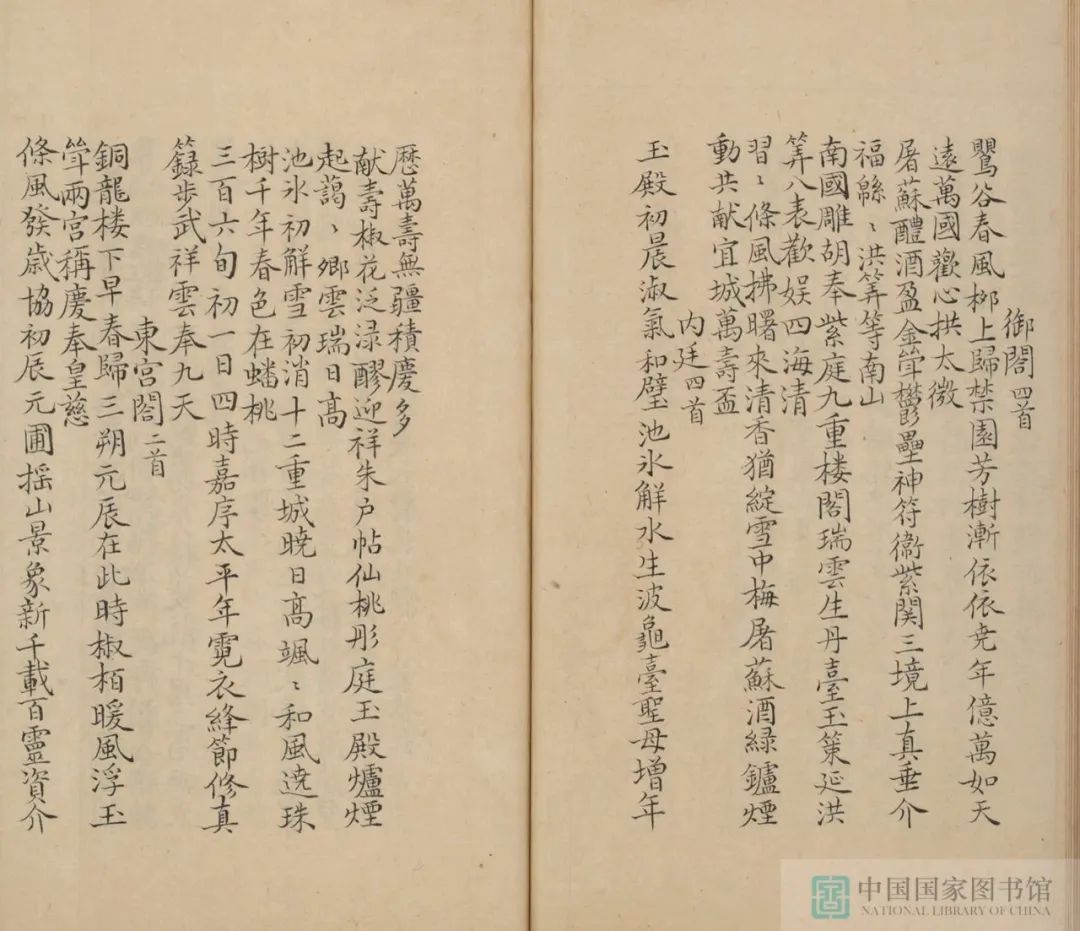 御閣四首
鸎谷春風栁上歸禁園芳樹漸依依尭年億萬如天
遠萬國歡心拱太微
屠蘇醴酒盈金斝欝壘神符衞紫関三境上真垂介
福緜〻洪筭等南山
南國雕胡奉紫庭九重楼閣瑞雲生丹臺玉策延洪
筭八表歡娱四海清
習〻條風拂曙來清香猶綻雪中梅屠蘇酒緑鑪煙
動共献宜城萬壽盃
内廷四首
玉殿初晨淑氣和璧池氷解水生波龜臺聖母增年
厯萬壽無疆積慶多
献壽椒花泛渌醪迎祥朱户帖仙桃彤庭玉殿爐煙
起藹〻郷雲瑞日髙
池氷初解雪初消十二重城曉日髙颯〻和風遶珠
樹千年春色在蟠桃
三百六旬初一日四時嘉序太平年霓衣絳節修真
籙步武祥雲奉九天
東宫閣二首
銅龍楼下早春歸三朔元辰在此時椒栢暖風浮玉
斝兩宫稱慶奉皇慈
條風發歳協初辰元圃揺山景象新千載百靈資介
中国国家图书馆
NATIONAL LIBRARY OF CHINA